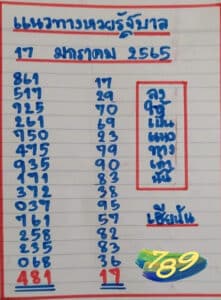 แนวทางหวยรัฐบาล
17 มกราคม 2565
861 17
517 29 ลง
725 70 ใช้
261 69 เป็น
750 83 แนว
475 79 ทาง
935 90 เท่า
171 83 นั้น
372 38
037 95
761 57 เซียนัน
258 82
235 83
068 36
481 17
789